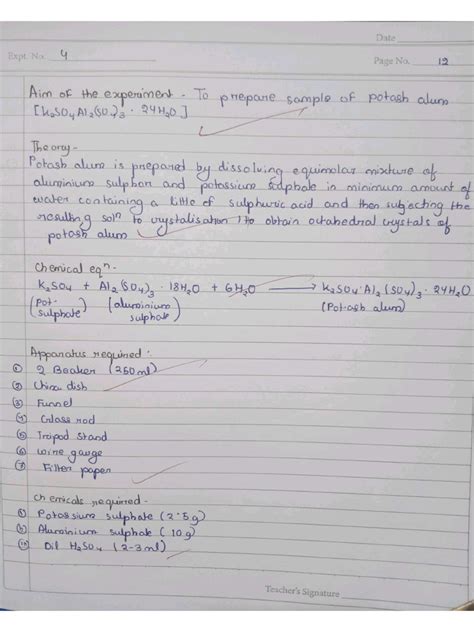 Date
Expt. No. 4
Page No. 12
Aim of the experiment - To prepare sample of potash alum
[K₂SO₄Al₂(SO₄)₃ · 24H₂O]
Theory -
Potash alum is prepared by dissolving equimolar mixture of
aluminium sulphar and potassium sulphate in minimum amount of
water containing a little of sulphuric acid and then subjecting the
resulting solⁿ to crystalisation to obtain octahedral crystals of
potash alum
Chemical eqⁿ -
K₂SO₄ + Al₂(SO₄)₃ · 18H₂O + 6H₂O ⟶ K₂SO₄·Al₂(SO₄)₃·24H₂O
(Pot- sulphate) (aluminium sulphate) (Potash alum)
Apparatus required :
① 2 Beaker (250ml)
② China dish
③ Funnel
④ Glass rod
⑤ Tripod Stand
⑥ wire gauge
⑦ Filter paper
Chemicals required -
(i) Potassium sulphate (2.5g)
(ii) Aluminium sulphate (10g)
(iii) Dil H₂SO₄ (2-3ml)
Teacher's Signature